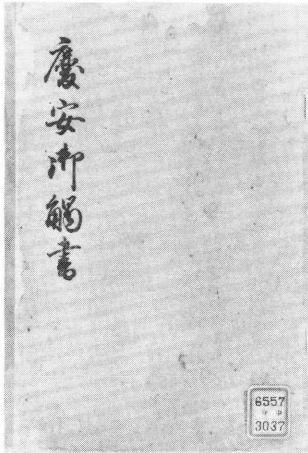 慶安御觸書
6557
3037